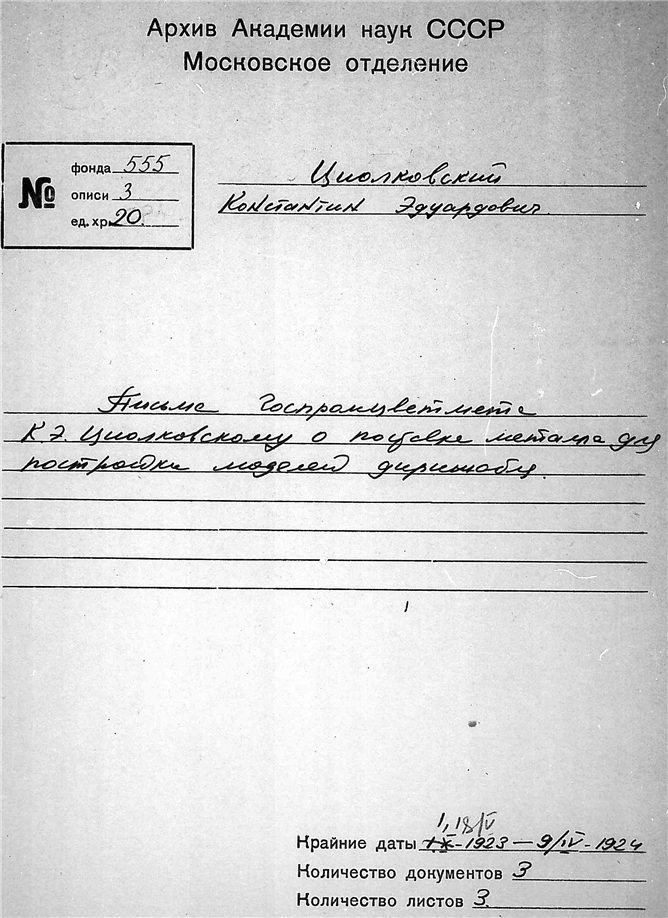 Архив Академии наук СССР
Московское отделение
№
фонда 555
описи 3
ед. хр. 20.
Циолковский
Константин Эдуардович.
Письма Госпромцветмета
К.Э. Циолковскому о поставке металла для
постройки моделей дирижабля.
1, 18/V
Крайние даты 1923 — 9/IV - 1924
Количество документов 3
Количество листов 3.